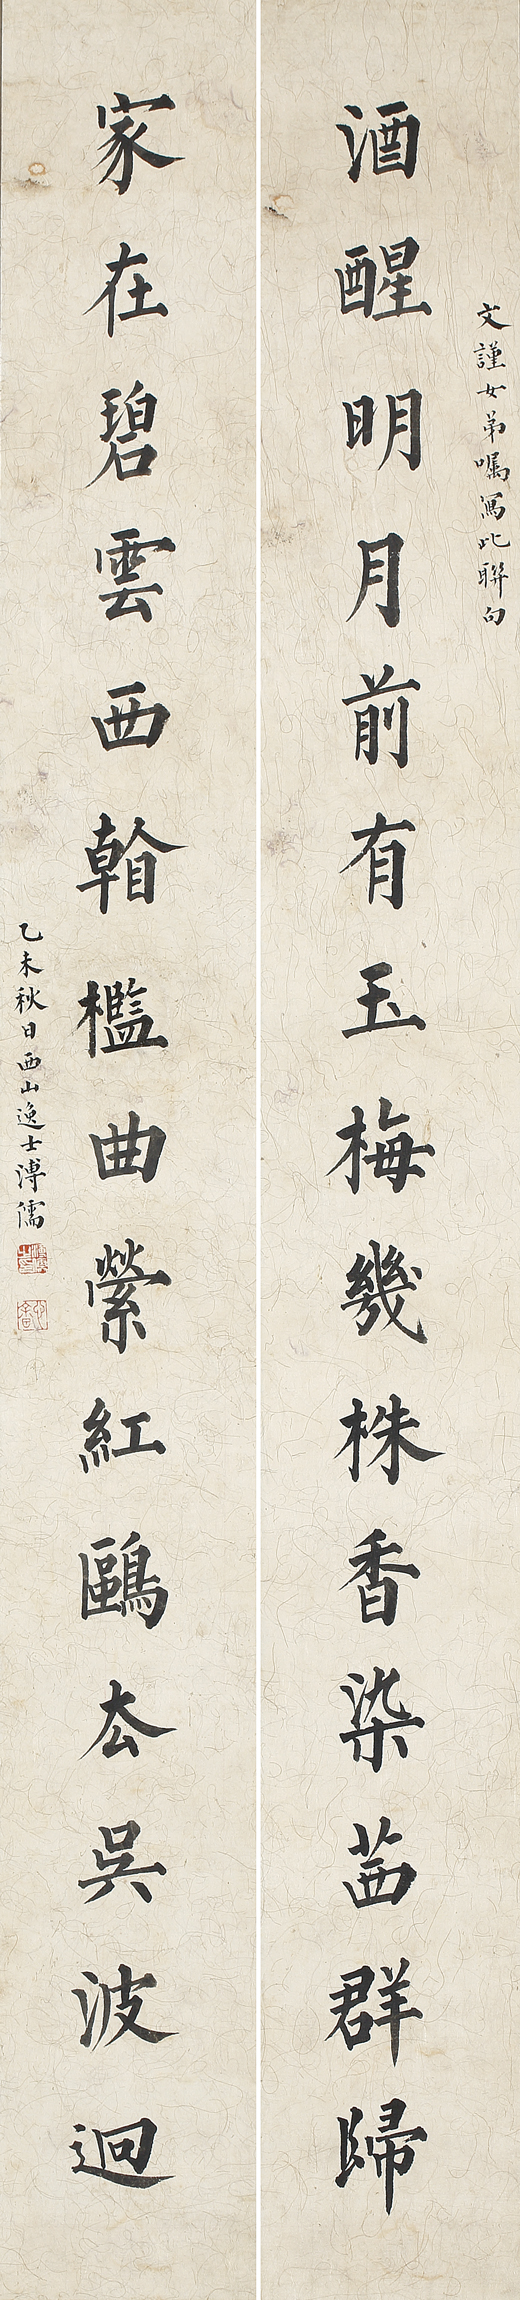 文謹女弟囑寫此聯句
酒醒明月前有玉梅幾株香染茜群歸
家在碧雲西檻曲縈紅鷗厺吳波迴
乙未秋日西山逸士溥儒
溥儒之印
心畬